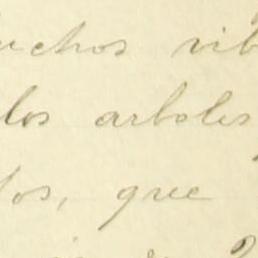 uchos vib
los arboles
los, que